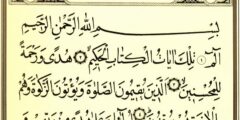 بِسْمِ اللهِ الرَّحْمٰنِ الرَّحِيمِ
الٓمٓ ۝ تِلْكَ اٰيَاتُ الْكِتَابِ الْحَكِيمِ ۝ هُدًى وَرَحْمَةً
لِلْمُحْسِنِينَ ۝ اَلَّذِينَ يُقِيمُونَ الصَّلٰوةَ وَيُؤْتُونَ الزَّكٰوةَ وَهُمْ